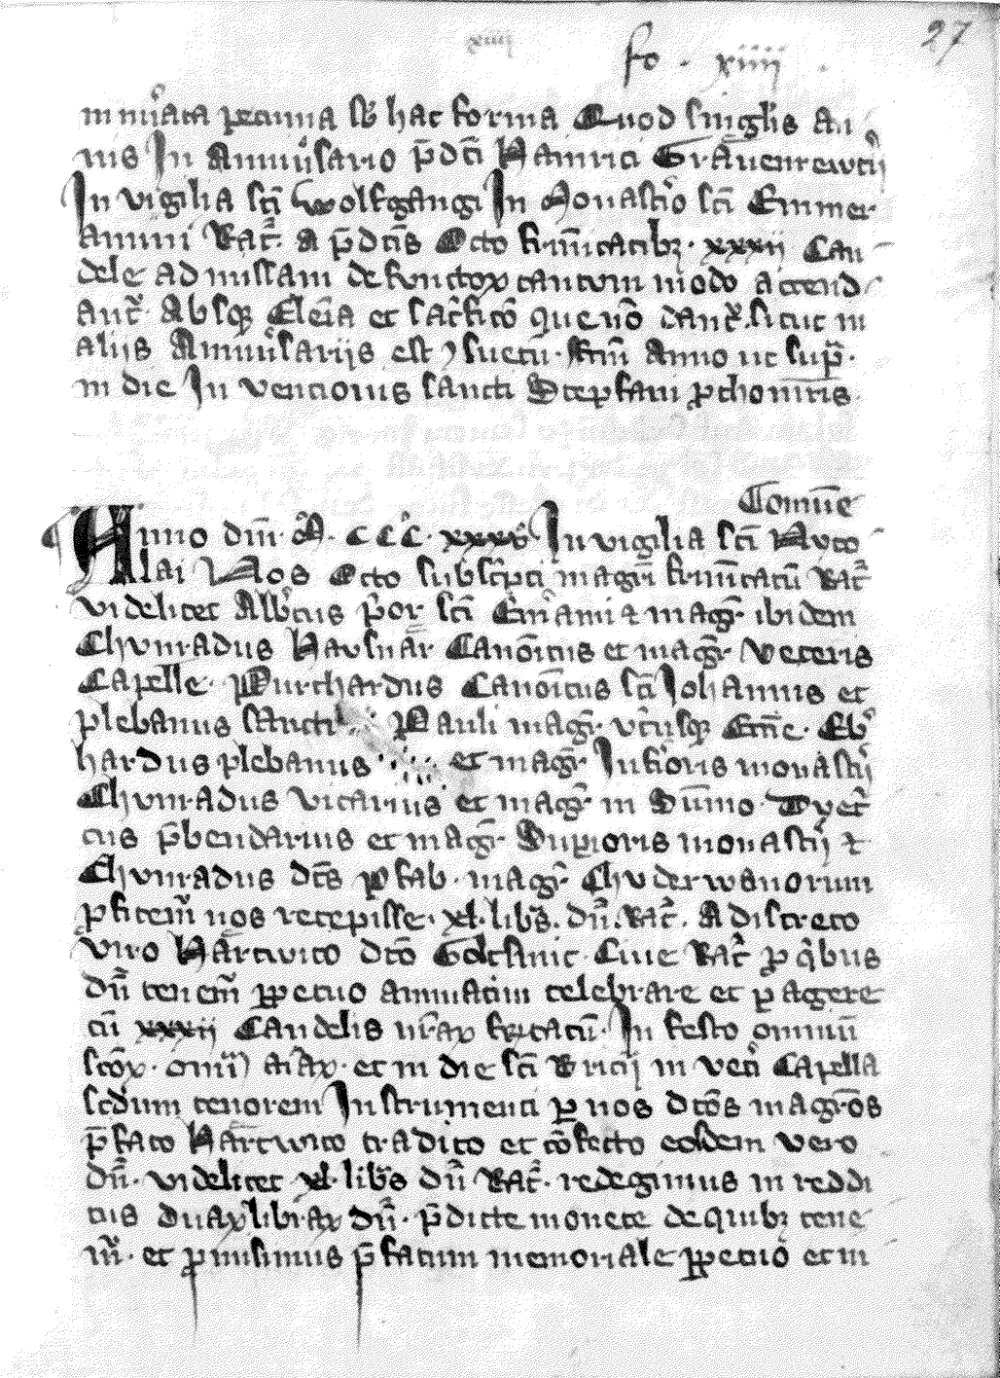 27
fo . xiiii .
in mi᷑ata pecunia sb᷑ hac forma Quod singl᷑is an
nis In Anniu᷑sario p̄dc̄i Hainrici Grāuenrewtī
In vigilia sc̄i Wolfgangi In Monast᷑io sc̄i Emmer
ammi Rat᷑. a p̄dc̄is Octo frn̄itatibꝫ. xxxii Can
dele ad missam defunctoꝝ tantum modo accend
ant᷑. Absqꝫ Eleīa et sac᷑ficō que nō dant᷑. sicut in
aliis Anniu᷑sariis est ꝯsuetū. Actū Anno ut sup᷑.
in die Inventionis sancti Stephani ꝓthomr̄is.
Comūe
Anno dn̄i. M. CCC. xxxv Jn vigilia sc̄i Nyco
lai Nos Octo subsc᷑pti magr̄i frn̄itatū Rat᷑
videlicet Alb᷑tus p᷑or sc̄i Em᷑ami ⁊ magr̄ ibidem
Chunradus Hausnār Canōicus et magr̄ Veteris
Capelle. Purchardus Canōicus sc̄i Johannis et
plebanus sancti .. Pauli magr̄ vt᷑usqꝫ Em̄e. Eb᷑
hardus plebanus .... et magr̄ Inf᷑ioris monast᷑ii
Chunradus vicarius et magr̄ in Sūmo. Dyet᷑
cus p̄bendarius et magr̄ Supioris monast᷑ii ⁊
Chunradus dc̄s pfab. magr̄ Chuderwanorum
ꝓfitem᷑ nos recepisse. xl. libr̄s. dn᷑. Rat᷑. A discreto
viro Hārtwico dc̄o Goltsmit. Cive Rat᷑ ꝓ q᷑bus
dn᷑ tenem᷑ ꝑpetuo annuatim celebrare et ꝑagere
cū xxxii Candelis nr̄aꝝ fr̄itatū. In festo omniū
sc̄oꝝ. omī aīaꝝ. et in die sc̄i Bricii in vet᷑i Capella
scdum tenorem Instrumenti ꝑ nos dc̄os magr̄os
p̄fato Hārtwico tradito et cōfecto eosdem vero
dn᷑. videlicet xl. libr̄s dn᷑ Rat᷑. redegimus in reddi
tus duaꝝ libraꝝ dn᷑. p̄dicte monete de quibꝫ tene
m᷑. et ꝓmisimus p̄fatum memoriale ꝑpetuo et in